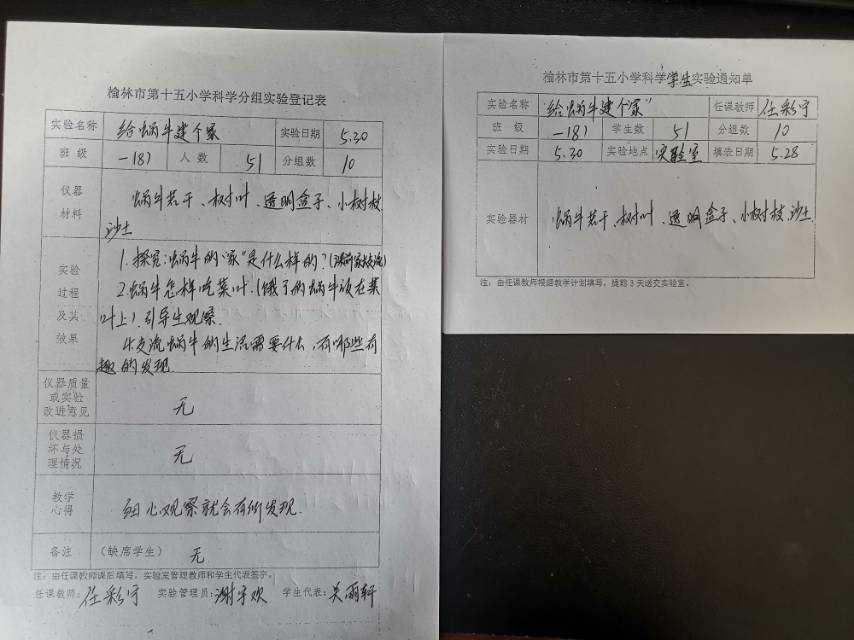 榆林市第十五小学科学分组实验登记表
实验名称 给蜗牛建个家 实验日期 5.30
班级 一(8) 人数 51 分组数 10
仪器材料 蜗牛若干、树叶、透明盒子、小树枝
沙土
实验过程及其效果
1.探究:蜗牛的"家"是什么样的?
2.蜗牛怎样吃菜叶.(饿了的蜗牛放在菜
叶上).引导生观察.
小交流蜗牛的生流需要什么,有哪些有
趣的发现.
仪器质量或实验改进意见 无
仪器损坏与处理情况 无
教学心得 细心观察就会有所发现.
备注 (缺席学生) 无
注:由任课教师课后填写,实验室管理教师和学生代表签字。
任课教师: 任彩宁 实验管理员: 谢宇欢 学生代表: 关雨轩
榆林市第十五小学科学学生实验通知单
实验名称 "给蜗牛建个家" 任课教师 任彩宁
班级 一(8) 学生数 51 分组数 10
实验日期 5.30 实验地点 实验室 填表日期 5.28
实验器材 蜗牛若干、树叶、透明盒子、小树枝、沙土
注:由任课教师根据教学计划填写,提前3天送交实验室。